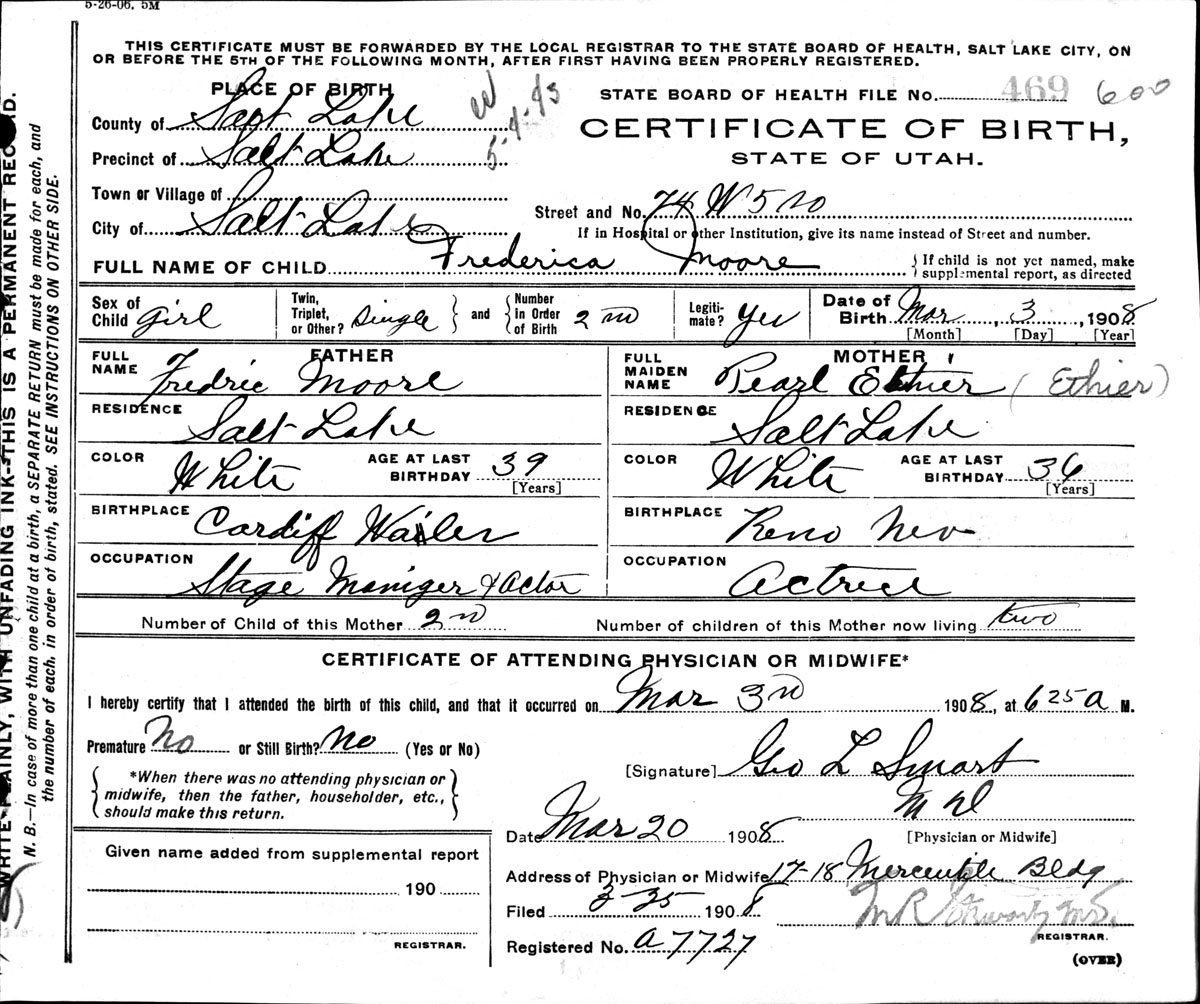 5-26-06. 5M
THIS CERTIFICATE MUST BE FORWARDED BY THE LOCAL REGISTRAR TO THE STATE BOARD OF HEALTH, SALT LAKE CITY, ON
OR BEFORE THE 5TH OF THE FOLLOWING MONTH, AFTER FIRST HAVING BEEN PROPERLY REGISTERED.
PLACE OF BIRTH
STATE BOARD OF HEALTH FILE No. 469 600
County of Salt Lake
5-4-43
CERTIFICATE OF BIRTH,
STATE OF UTAH.
Precinct of Salt Lake
Town or Village of
Street and No. 74 W 5 no
City of Salt Lake
If in Hospital or other Institution, give its name instead of Street and number.
FULL NAME OF CHILD Frederica Moore
{ If child is not yet named, make
supplemental report, as directed
Sex of Child Girl
Twin, Triplet, or Other? Single } and { Number in Order of Birth 2nd
Legiti-mate? Yes
Date of Birth Mar, 3, 1908
[Month] [Day] [Year]
FATHER
FULL NAME Fredric Moore
RESIDENCE Salt Lake
COLOR White AGE AT LAST BIRTHDAY 39
[Years]
BIRTHPLACE Cardiff Wailes
OCCUPATION Stage Maniger & Actor
MOTHER
FULL MAIDEN NAME Pearl Ethier (Ethier)
RESIDENCE Salt Lake
COLOR White AGE AT LAST BIRTHDAY 36
[Years]
BIRTHPLACE Reno Nev
OCCUPATION Actrice
Number of Child of this Mother 2nd Number of children of this Mother now living two
CERTIFICATE OF ATTENDING PHYSICIAN OR MIDWIFE*
I hereby certify that I attended the birth of this child, and that it occurred on Mar 3rd 1908, at 6 25 a M.
Premature No or Still Birth? No (Yes or No)
{ *When there was no attending physician or
midwife, then the father, householder, etc.,
should make this return. }
[Signature] Geo L Smart
M D
[Physician or Midwife]
Date Mar 20 1908
Address of Physician or Midwife 17-18 Mercantile Bldg
Filed 3-25 1908
M R Stewart M.D.
REGISTRAR.
Registered No. a 7727
(OVER)
Given name added from supplemental report
190
REGISTRAR.
WRITE PLAINLY, WITH UNFADING INK--THIS IS A PERMANENT RECORD.
N. B.—In case of more than one child at a birth, a SEPARATE RETURN must be made for each, and
the number of each, in order of birth, stated. SEE INSTRUCTIONS ON OTHER SIDE.